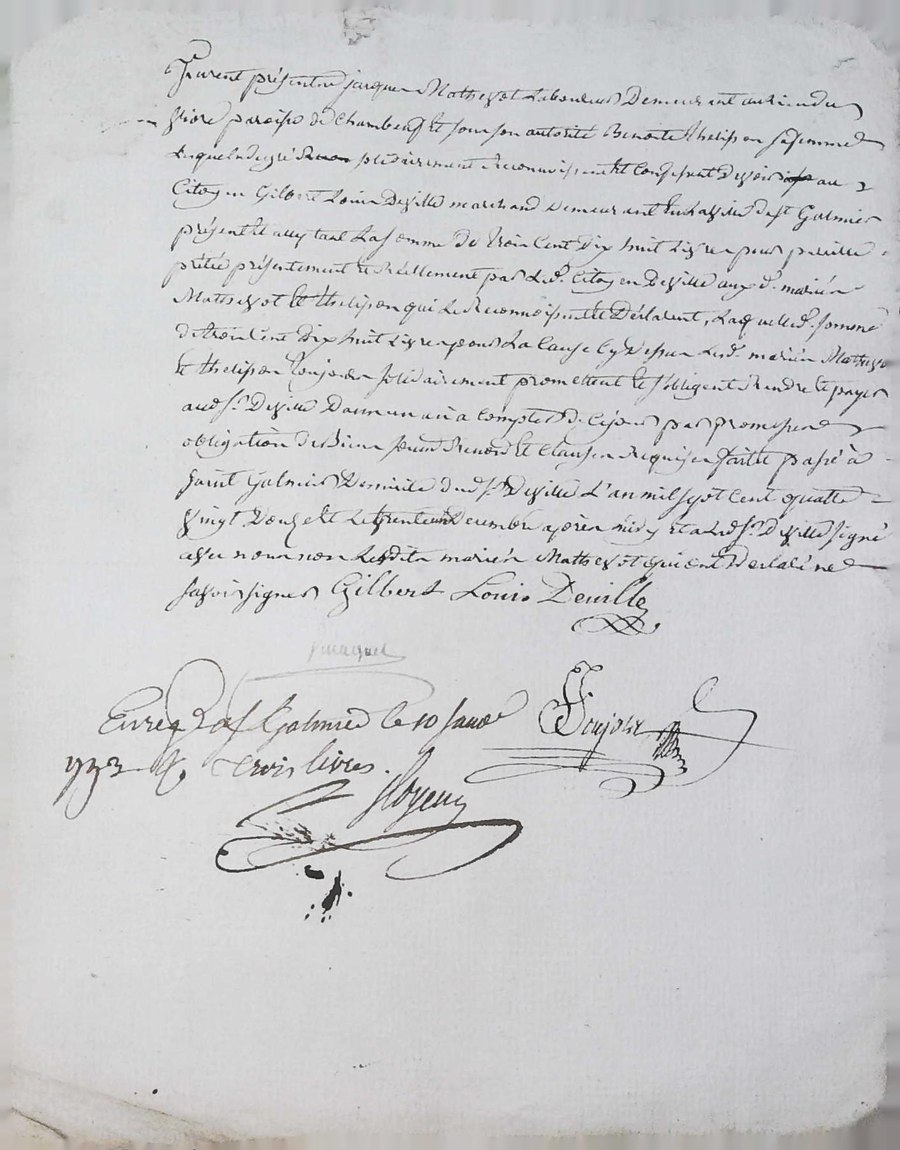 Furent présentre jacques Mathevot Laboureur Demeurant au lieu du
paroisse de Chambeuf et sous son autorité Benoite thelisson sa femme
Lesquels de gré solidairement Reconnoissent et Confessent devoir au
Citoyen Gilbert Louis Deville marchand Demeurant en La ville de st Galmier
présent et acceptant La somme de trois Cent Dix huit Livres pour pareille
prêtée présentement et Réellement par Led. Citoyen Deville auxd. mariés
Mathevot et thelisson qui Le Reconnoissent et Déclarent, Laquelle d. somme
de trois Cent Dix huit Livres pour La Cause Cy Dessus Lesd. mariés Mathevot
et thelisson toujours solidairement promettent et s'obligent Rendre et payer
aud. Sr. Deville Dans un an à Compter de Ce jour par promesse
obligation de Biens Renond et Clauses Requises faitte passé à
Saint Galmier Domicile dud. Sr. Deville L'an mil sept Cent quattre
vingt Douze et Le trente un Decembre après midy et a Led. Sr. Deville signé
avec nous non Lesdits mariés Mathevot qui ont déclaré ne
savoir signer Gilbert Louis Deville
Enreg à St Galmier le 10 Janv
1793 R. trois livres.